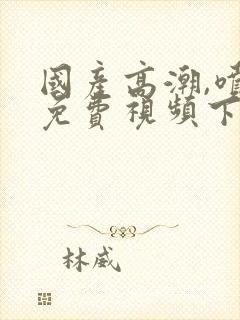 國產高潮,噴
免費視頻下
林威